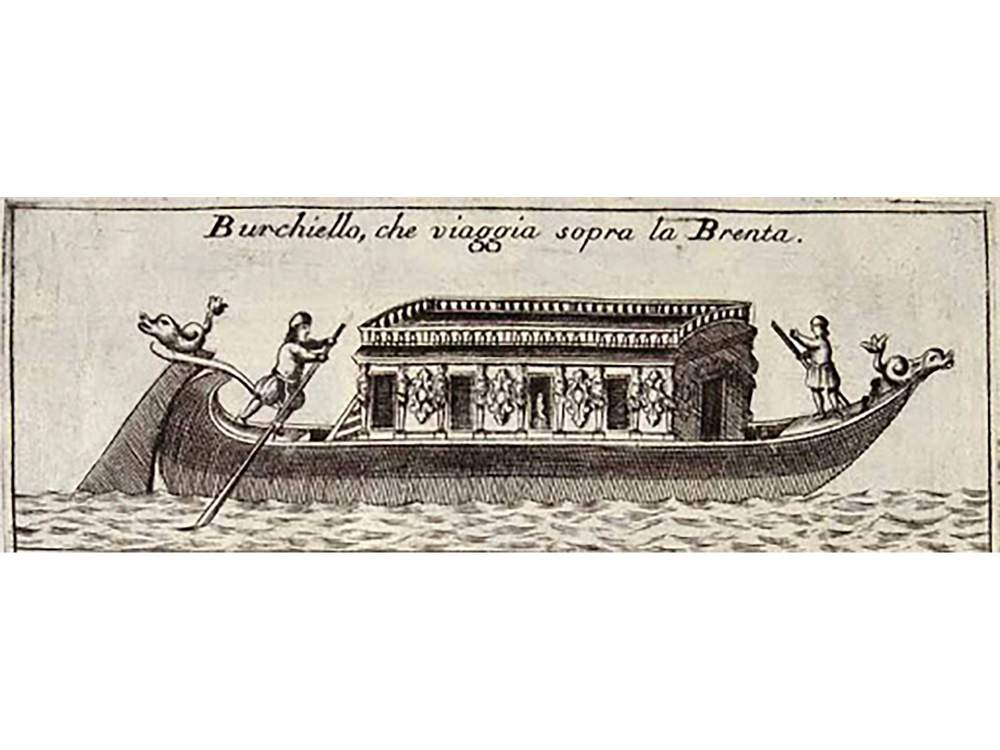 Burchiello, che viaggia sopra la Brenta.